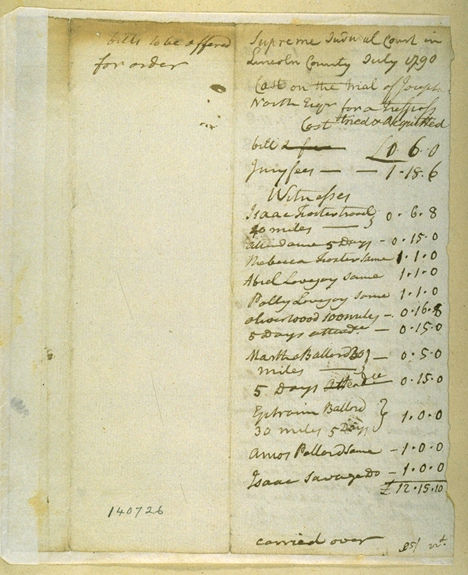 bills to be offered
for order
Supreme Judicial Court in
Lincoln County July 1790
Cost on the trial of Joseph
North Esqr for a trespass
Cost tried & Acquitted
bill £0. 6. 0
Jury fees — — 1. 18. 6
Witnesses
Isaac Foster travel
40 miles — 0. 6. 8
attendance 5 Days - 0. 15. 0
Rebecca Foster same 1. 1. 0
Abiel Lovejoy same 1. 1. 0
Polly Lovejoy same 1. 1. 0
Oliver Wood 100 miles - 0. 16. 8
5 Days attendce - 0. 15. 0
Martha Ballord 30
miles — 0. 5. 0
5 Days attendce 0. 15. 0
Ephraim Ballord
30 miles 5 Days 1. 0. 0
Amos Pollord same - 1. 0. 0
Isaac Savage Do - 1. 0. 0
£ 12. 15. 10
carried over
140726